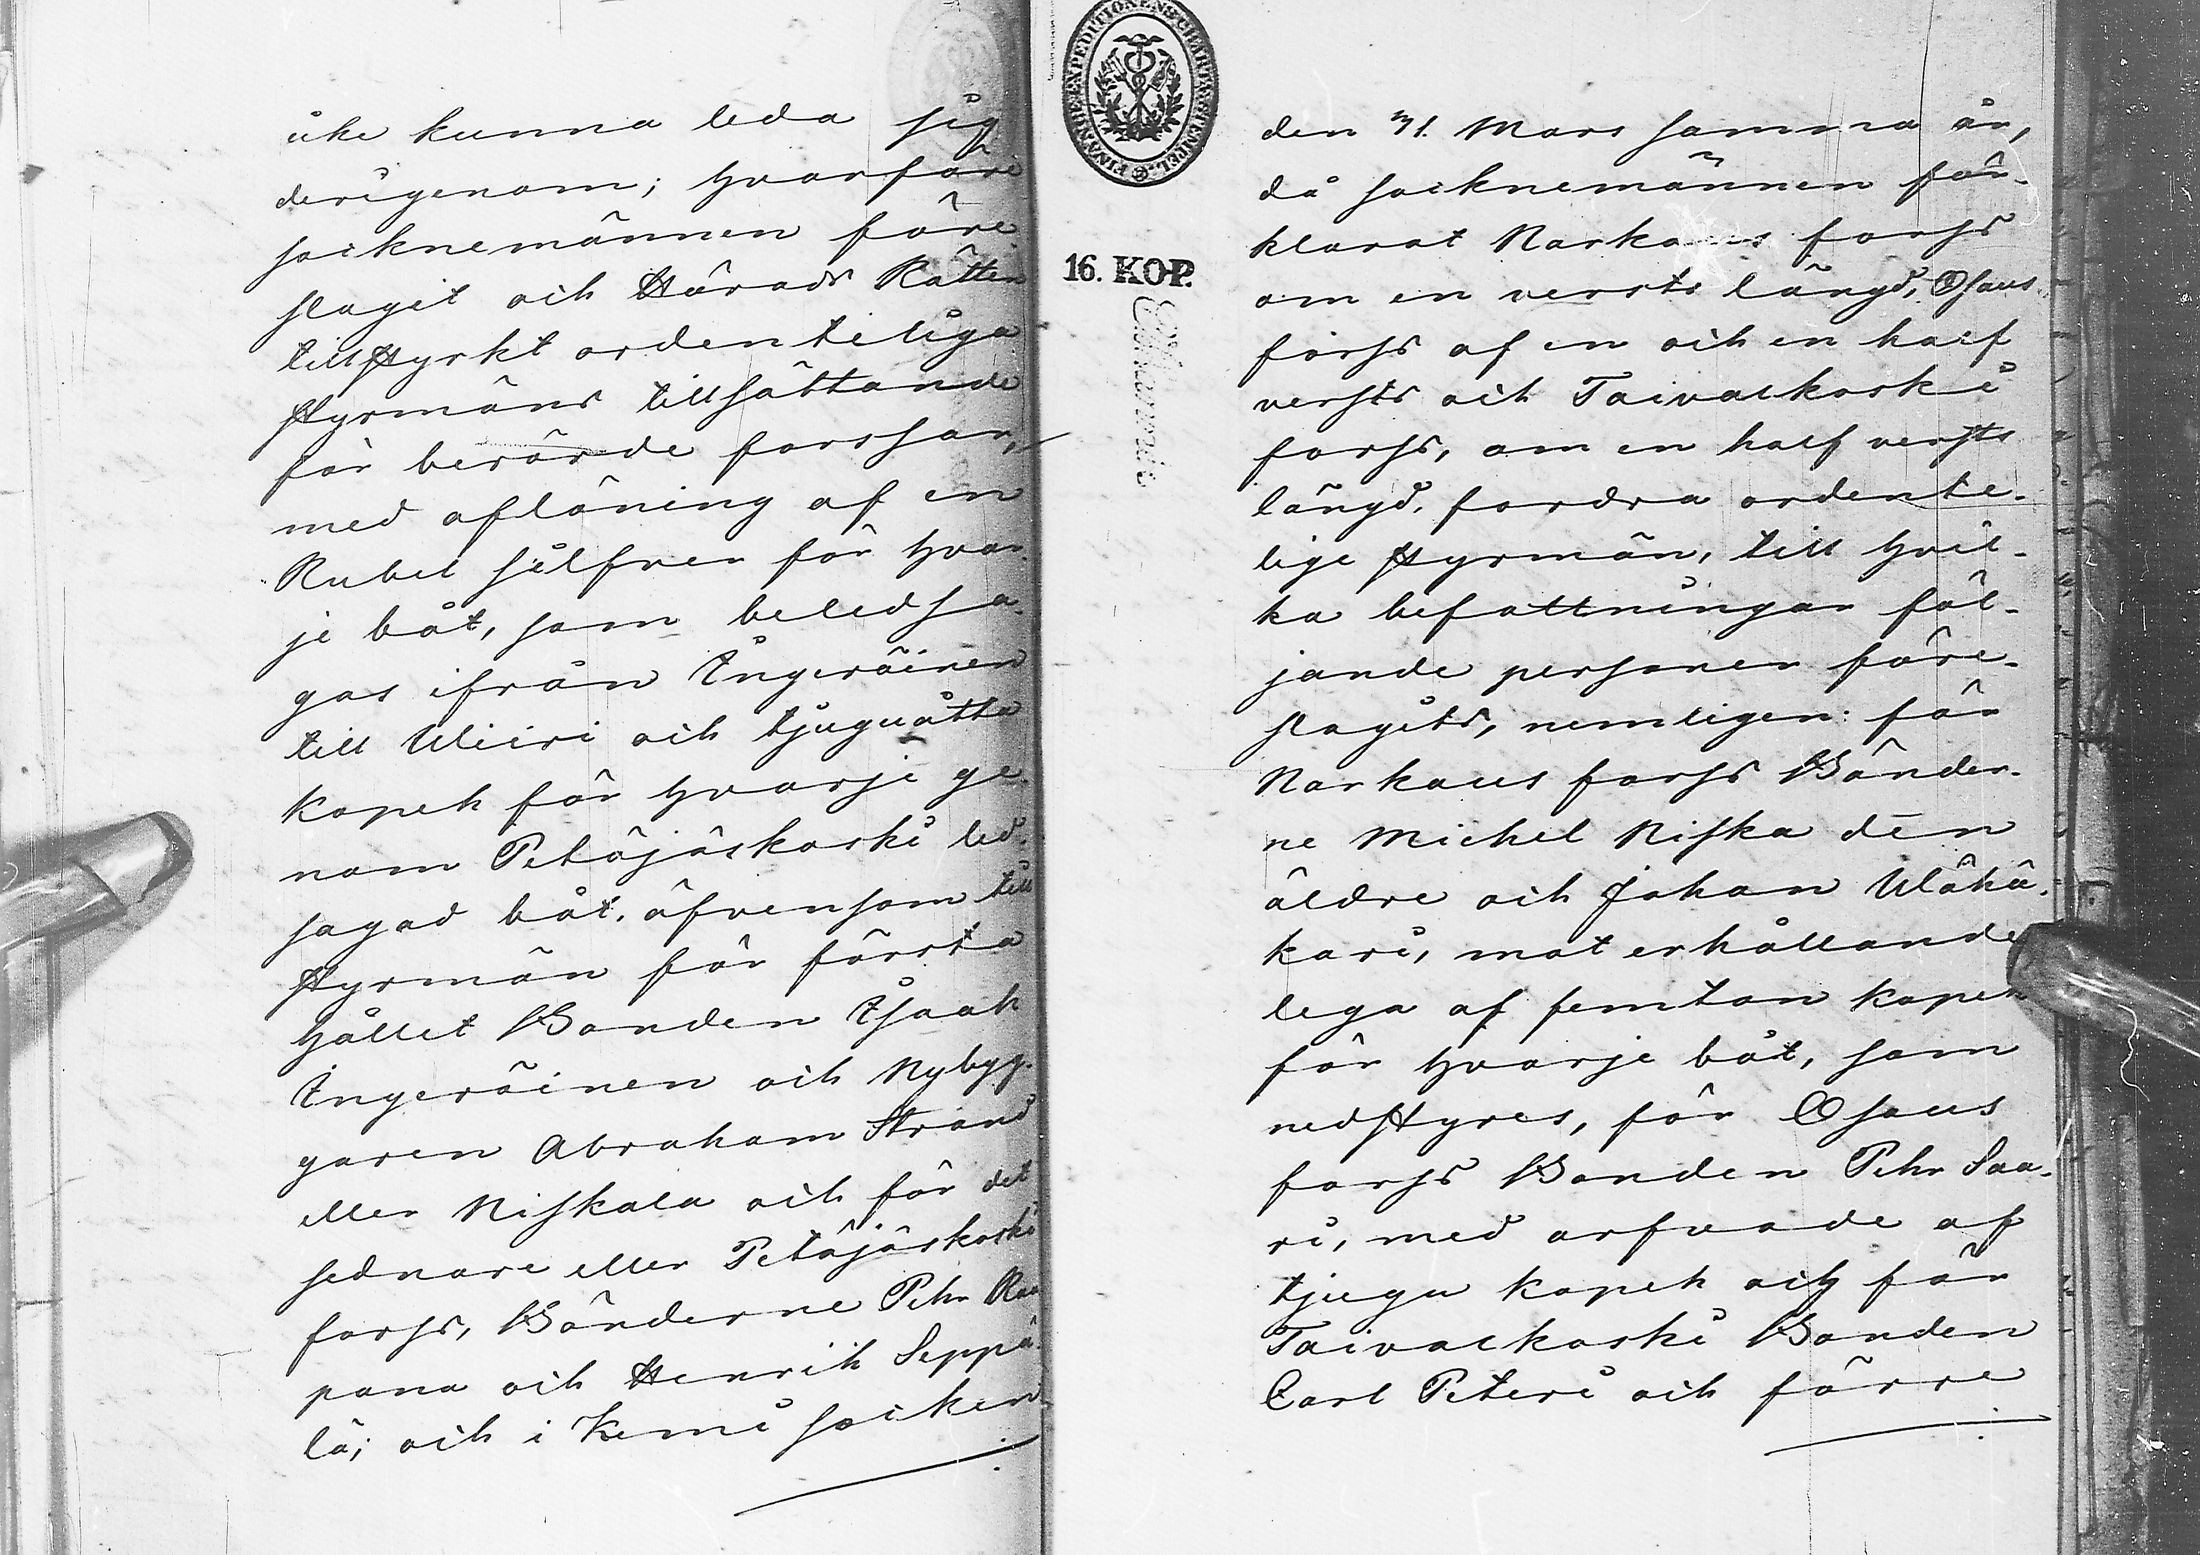 icke kunna leda sig
derigenom; hvarföre
socknemännen före-
slagit och Härads Rätten
tillstyrkt ordenteliga
styrmäns tillsättande
för berörde forssar,
med aflöning af en
Rubel silfver för hvar-
je båt, som beledsa-
gas ifrån Ingeräinen
till Uleiri och tjuguåtta
kopek för hvarje ge-
nom Petäjäskoski led-
sagad båt, äfvensom till
styrmän för första
hållet Bonden Isaak
Ingeräinen och Nybyg-
garen Abraham Strand
eller Niskala och för det
sednare eller Petäjäskoski
forss, Bönderne Pehr Rau-
pana och Henrik Seppä-
lä; och i Kemi socken
FINANCE EXPEDITIONENS CHARTÆ STEMPEL
16. KOP.
den 31. Mars samma år,
då socknemännen för-
klarat Narkaus forss
om en versts längd, Osaus
forss af en och en half
versts och Taivalkoski
forss, om en half versts
längd, fordra ordente-
lige styrmän, till hvil-
ka befattningar föl-
jande personer före-
slagits, nemligen: för
Narkaus forss Bönder-
ne Michel Niska den
äldre och Johan Ulakä-
kari, mot erhållande
lega af femton kopek
för hvarje båt, som
nedstyres, för Osaus
forss Bonden Pehr Saa-
ri, med arfvode af
tjugu kopek och för
Taivalkoski Bonden
Carl Peteri och förre